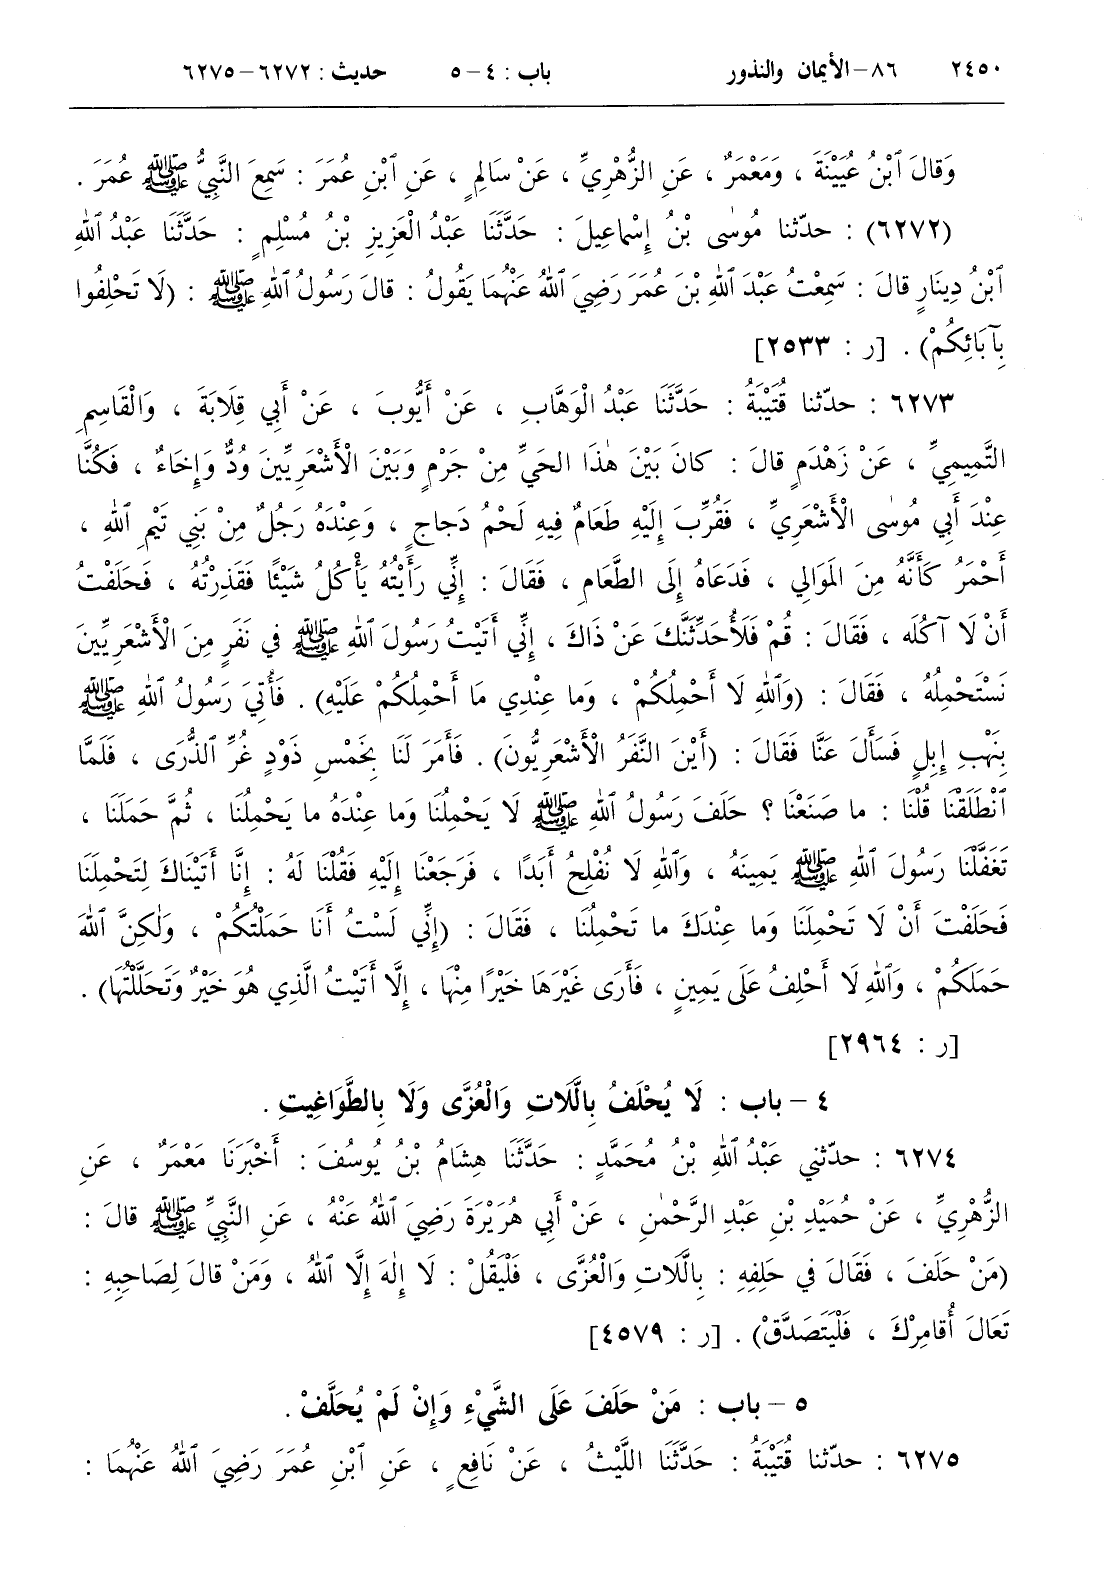 ٢٤٥٠ ٨٦ - الأيمان والنذور باب : ٤ - ٥ حديث : ٦٢٧٢ - ٦٢٧٥
وَقالَ ٱبْنُ عُيَيْنَةَ ، وَمَعْمَرٌ ، عَنِ الزُّهْرِيِّ ، عَنْ سَالِمٍ ، عَنِ ٱبْنِ عُمَرَ : سَمِعَ النَّبِيُّ ﷺ عُمَرَ .
(٦٢٧٢) : حدّثنا مُوسٰى بْنُ إِسْماعِيلَ : حَدَّثَنَا عَبْدُ الْعَزِيزِ بْنُ مُسْلِمٍ : حَدَّثَنَا عَبْدُ ٱللهِ
ٱبْنُ دِينَارٍ قالَ : سَمِعْتُ عَبْدَ ٱللهِ بْنَ عُمَرَ رَضِيَ ٱللهُ عَنْهُمَا يَقُولُ : قالَ رَسُولُ ٱللهِ ﷺ : (لَا تَحْلِفُوا
بِآبَائِكُمْ) . [ر : ٢٥٣٣]
٦٢٧٣ : حدّثنا قُتَيْبَةُ : حَدَّثَنَا عَبْدُ الْوَهَّابِ ، عَنْ أَيُّوبَ ، عَنْ أَبِي قِلَابَةَ ، وَالْقَاسِمِ
التَّمِيمِيِّ ، عَنْ زَهْدَمٍ قالَ : كانَ بَيْنَ هٰذَا الحَيِّ مِنْ جَرْمٍ وَبَيْنَ الْأَشْعَرِيِّينَ وُدٌّ وَإِخَاءٌ ، فَكُنَّا
عِنْدَ أَبِي مُوسٰى الْأَشْعَرِيِّ ، فَقُرِّبَ إِلَيْهِ طَعَامٌ فِيهِ لَحْمُ دَجاجٍ ، وَعِنْدَهُ رَجُلٌ مِنْ بَنِي تَيْمِ ٱللهِ ،
أَحْمَرُ كَأَنَّهُ مِنَ المَوَالِي ، فَدَعَاهُ إِلَى الطَّعَامِ ، فَقَالَ : إِنِّي رَأَيْتُهُ يَأْكُلُ شَيْئًا فَقَذِرْتُهُ ، فَحَلَفْتُ
أَنْ لَا آكُلَه ، فَقَالَ : قُمْ فَلَأُحَدِّثَنَّكَ عَنْ ذَاكَ ، إِنِّي أَتَيْتُ رَسُولَ ٱللهِ ﷺ في نَفَرٍ مِنَ الْأَشْعَرِيِّينَ
نَسْتَحْمِلُهُ ، فَقَالَ : (وَٱللهِ لَا أَحْمِلُكُمْ ، وَما عِنْدِي مَا أَحْمِلُكُمْ عَلَيْهِ) . فَأُتِيَ رَسُولُ ٱللهِ ﷺ
بِنَهْبِ إِبِلٍ فَسَأَلَ عَنَّا فَقَالَ : (أَيْنَ النَّفَرُ الْأَشْعَرِيُّونَ) . فَأَمَرَ لَنَا بِخَمْسِ ذَوْدٍ غُرِّ ٱلذُّرَى ، فَلَمَّا
ٱنْطَلَقْنَا قُلْنَا : ما صَنَعْنَا ؟ حَلَفَ رَسُولُ ٱللهِ ﷺ لَا يَحْمِلُنَا وَما عِنْدَهُ ما يَحْمِلُنَا ، ثُمَّ حَمَلَنَا ،
تَغَفَّلْنَا رَسُولَ ٱللهِ ﷺ يَمِينَهُ ، وَٱللهِ لَا نُفْلِحُ أَبَدًا ، فَرَجَعْنَا إِلَيْهِ فَقُلْنَا لَهُ : إِنَّا أَتَيْنَاكَ لِتَحْمِلَنَا
فَحَلَفْتَ أَنْ لَا تَحْمِلَنَا وَما عِنْدَكَ ما تَحْمِلُنَا ، فَقَالَ : (إِنِّي لَسْتُ أَنَا حَمَلْتُكُمْ ، وَلٰكِنَّ ٱللهَ
حَمَلَكُمْ ، وَٱللهِ لَا أَحْلِفُ عَلَى يَمِينٍ ، فَأَرَى غَيْرَهَا خَيْرًا مِنْهَا ، إِلَّا أَتَيْتُ الَّذِي هُوَ خَيْرٌ وَتَحَلَّلْتُهَا) .
[ر : ٢٩٦٤]
٤ - باب : لَا يُحْلَفُ بِاللَّاتِ وَالْعُزَّى وَلَا بِالطَّوَاغِيتِ .
٦٢٧٤ : حدّثني عَبْدُ ٱللهِ بْنُ مُحَمَّدٍ : حَدَّثَنَا هِشَامُ بْنُ يُوسُفَ : أَخْبَرَنَا مَعْمَرٌ ، عَنِ
الزُّهْرِيِّ ، عَنْ حُمَيْدِ بْنِ عَبْدِ الرَّحْمٰنِ ، عَنْ أَبِي هُرَيْرَةَ رَضِيَ ٱللهُ عَنْهُ ، عَنِ النَّبِيِّ ﷺ قالَ :
(مَنْ حَلَفَ ، فَقَالَ في حَلِفِهِ : بِاللَّاتِ وَالْعُزَّى ، فَلْيَقُلْ : لَا إِلٰهَ إِلَّا ٱللهُ ، وَمَنْ قالَ لِصَاحِبِهِ :
تَعَالَ أُقامِرْكَ ، فَلْيَتَصَدَّقْ) . [ر : ٤٥٧٩]
٥ - باب : مَنْ حَلَفَ عَلَى الشَّيْءِ وَإِنْ لَمْ يُحَلَّفْ .
٦٢٧٥ : حدّثنا قُتَيْبَةُ : حَدَّثَنَا اللَّيْثُ ، عَنْ نَافِعٍ ، عَنِ ٱبْنِ عُمَرَ رَضِيَ ٱللهُ عَنْهُمَا :